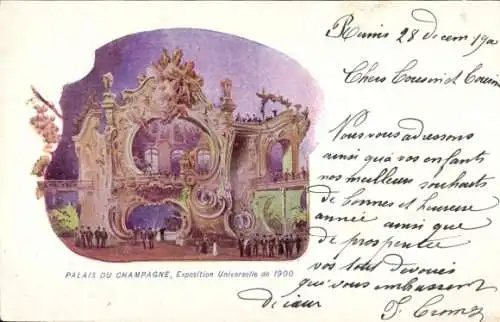 Reims 28 Décem 190
Chers Cousin et Cousine
Vous vous adressons
ainsi qu'à vos enfants
nos meilleurs souhaits
de bonnes et heureuse
année ainsi que
de prospérité
vos tout dévoués
qui vous embrassent
de cœur
PALAIS DU CHAMPAGNE, Exposition Universelle de 1900